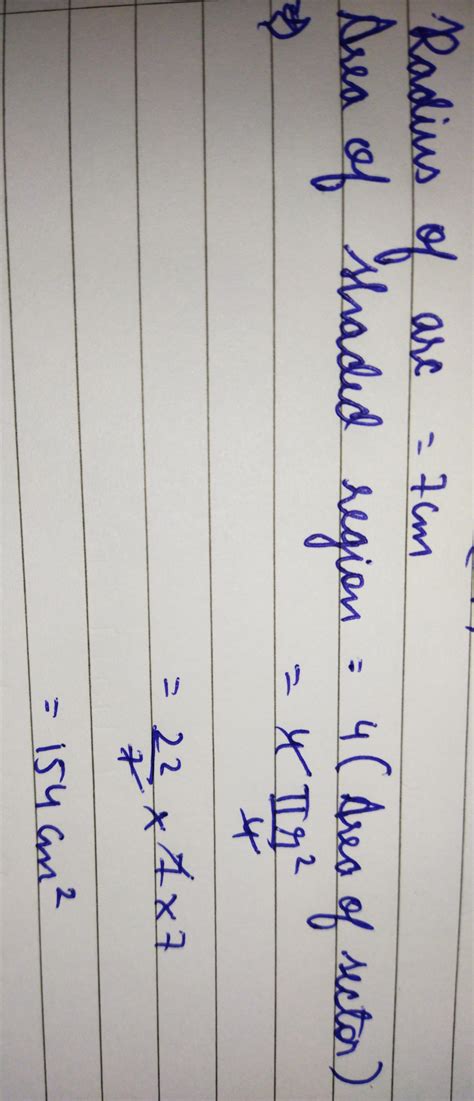 Radius of arc = 7cm
Area of shaded region = 4 (Area of sector)
⇒ = 4 πr²/4
= 22/7 × 7 × 7
= 154 cm²